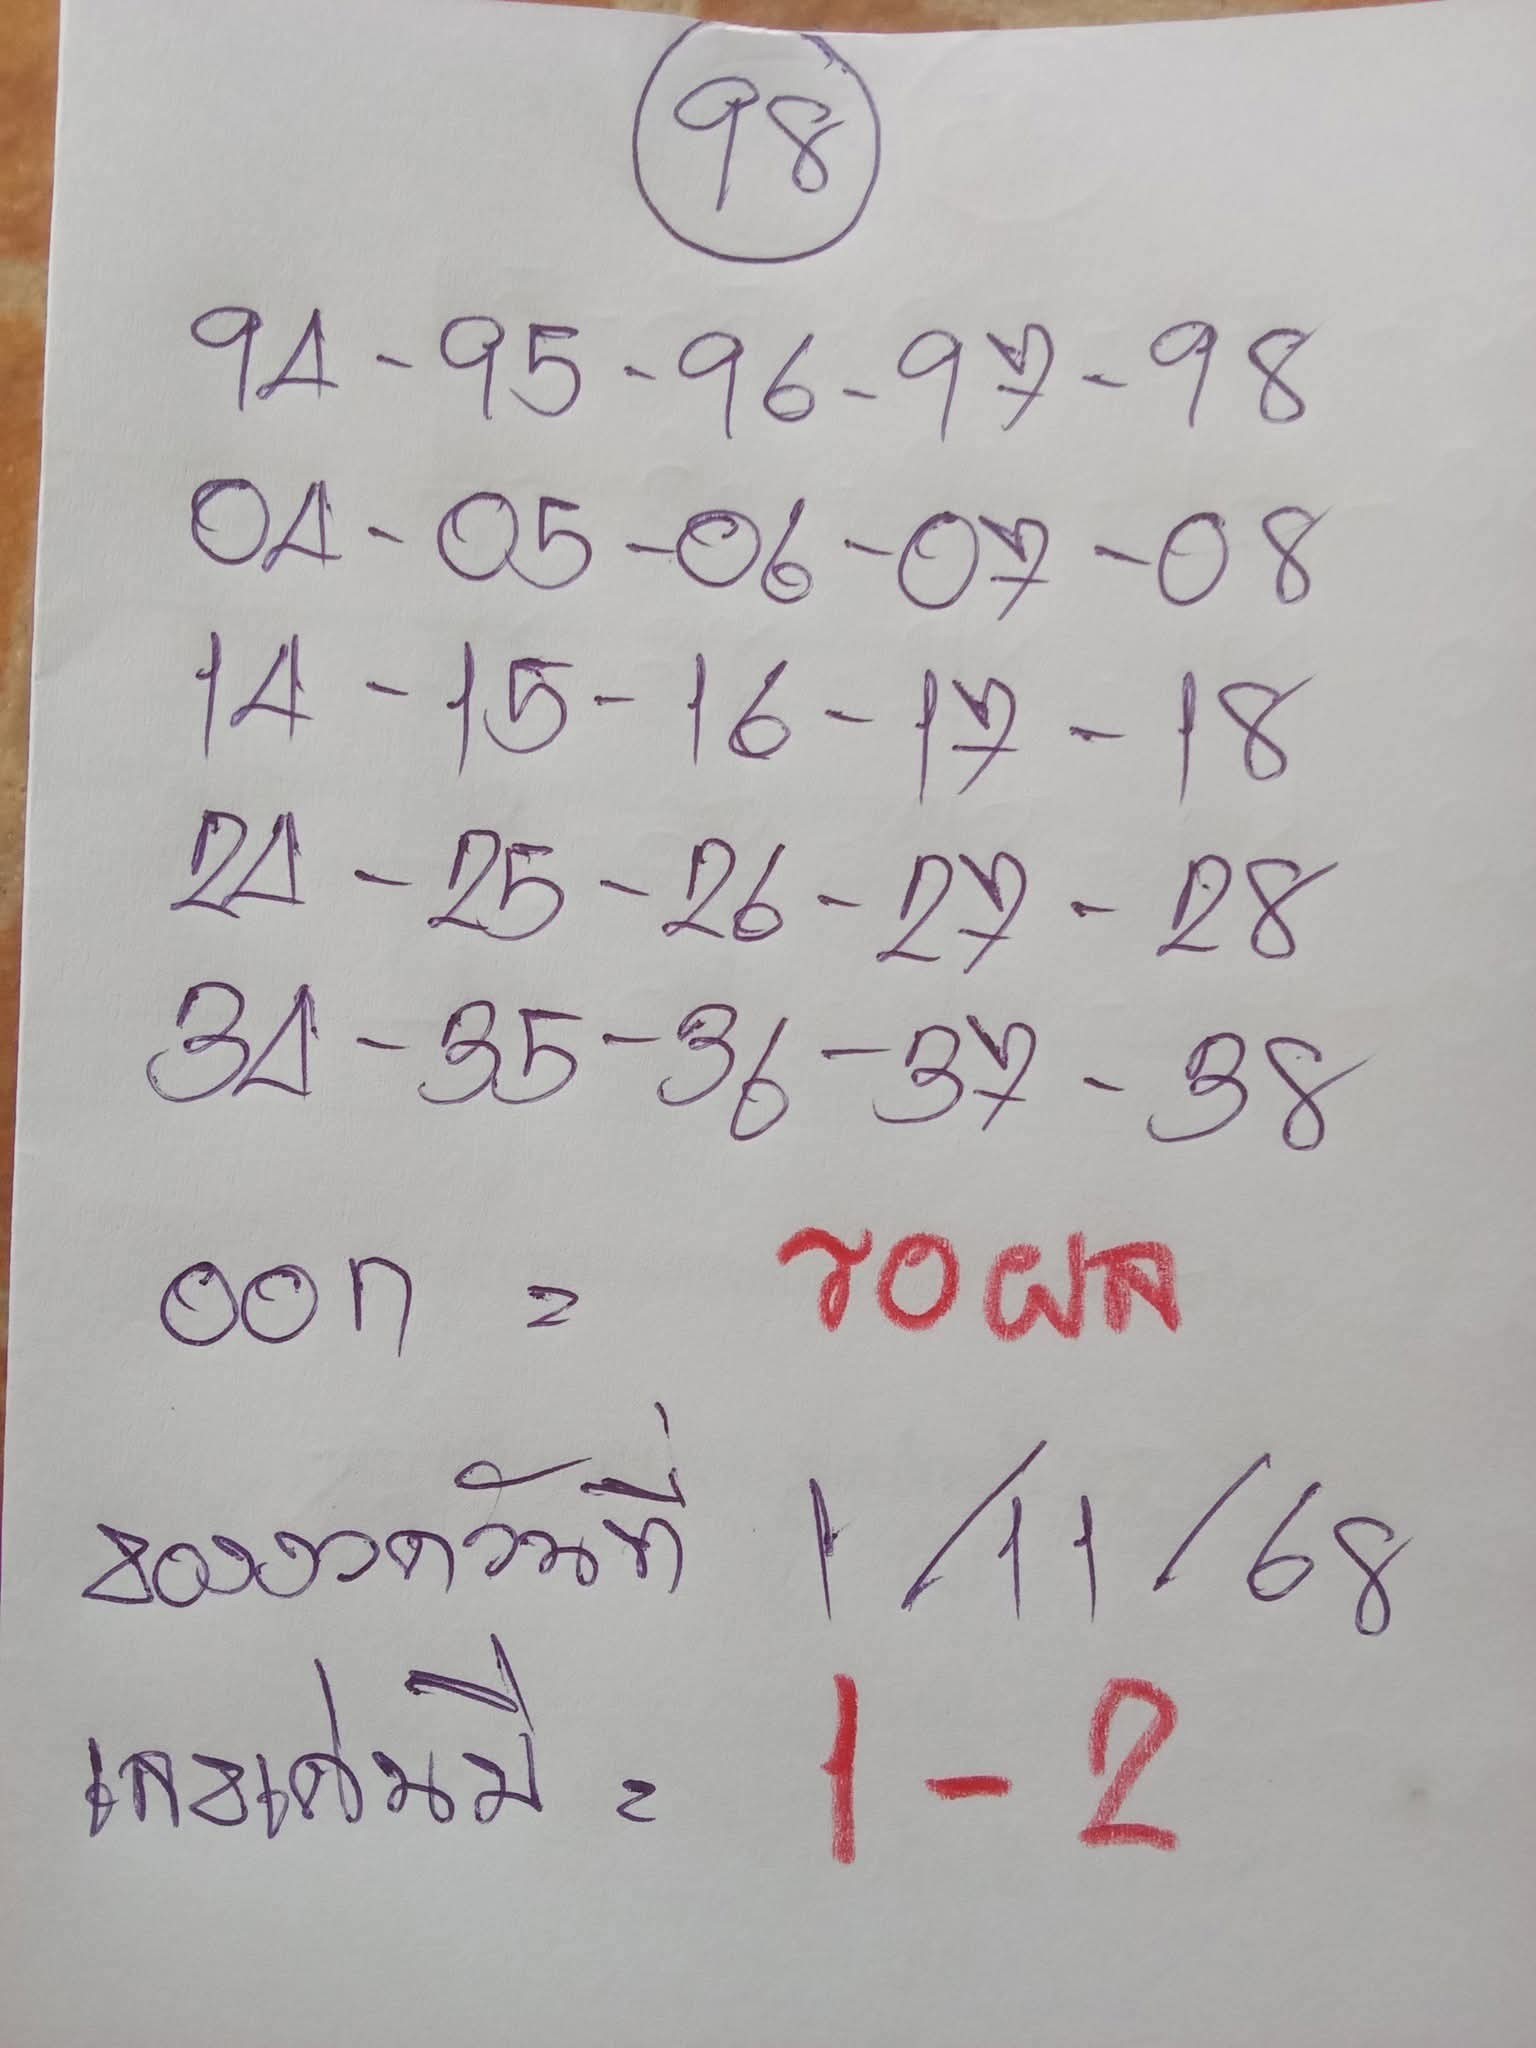 98
94 - 95 - 96 - 97 - 98
04 - 05 - 06 - 07 - 08
14 - 15 - 16 - 17 - 18
24 - 25 - 26 - 27 - 28
34 - 35 - 36 - 37 - 38
ออก = รอผล
ของงวดวันที่ 1/11/68
เลขเด่นมี = 1 - 2